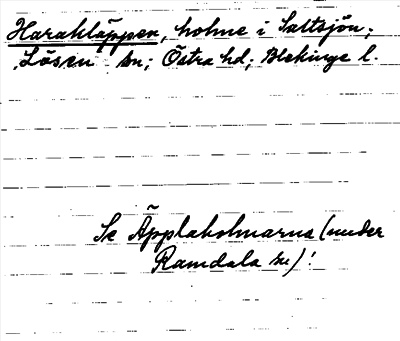 Harakläppen, holme i Saltsjön;
Lösen sn; Östra hd; Blekinge l.
Se Äpplaholmarna (under
Ramdala sn)!